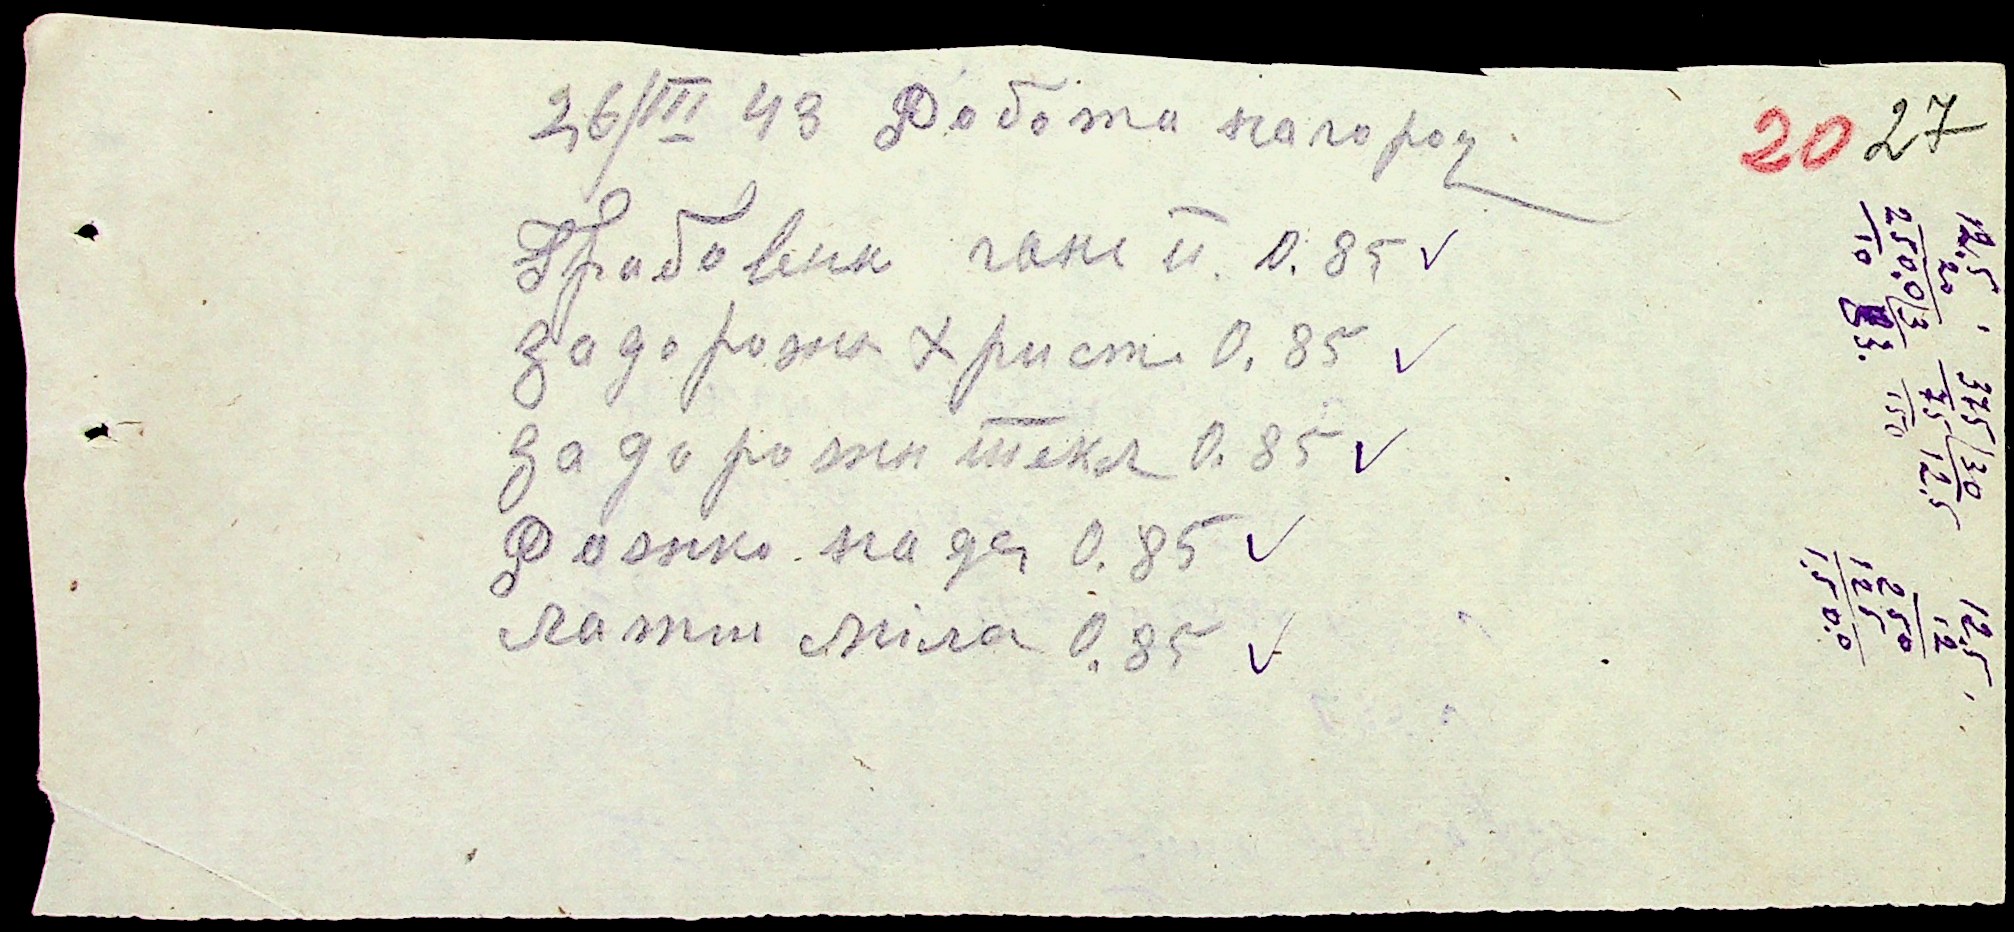 26/III 43 Робота на город
20 27
Грабовен гане II. 0.85 ✓
Задорожн Христ. 0.85 ✓
Задорожн текля 0.85 ✓
Рожко надя 0.85 ✓
Лати міла 0.85 ✓
12,5
20
250,0/3
10
375/30
75 12,5
150
12,5
12
250
125
1,50.0